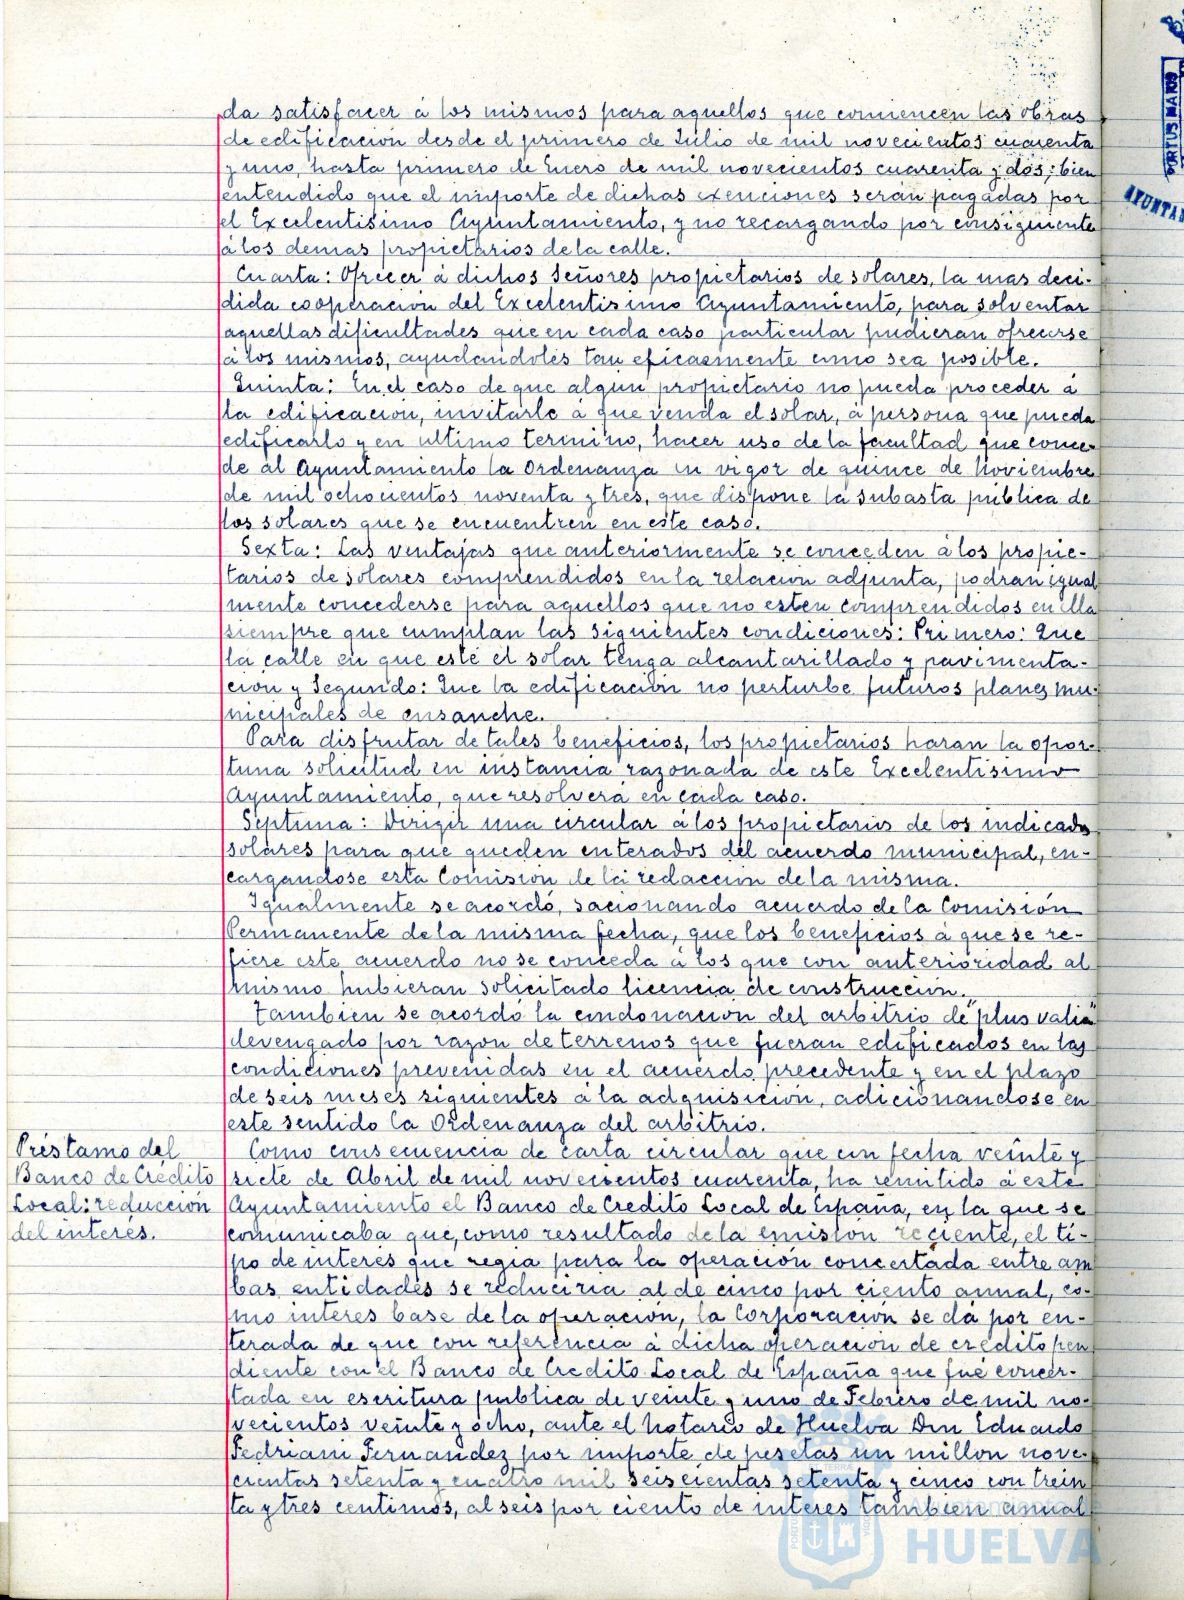 da satisfacer á los mismos para aquellos que comiencen las obras
de edificación desde el primero de Julio de mil novecientos cuarenta
y uno, hasta primero de Enero de mil novecientos cuarenta y dos; bien
entendido que el importe de dichas exenciones serán pagadas por
el Excelentisimo Ayuntamiento, y no recargando por consiguiente
á los demas propietarios de la calle.
Cuarta: Ofrecer á dichos Señores propietarios de solares, la mas deci-
dida cooperación del Excelentisimo Ayuntamiento, para solventar
aquellas dificultades que en cada caso particular pudieran ofrecerse
á los mismos, ayudandoles tan eficazmente como sea posible.
Quinta: En el caso de que algun propietario no pueda proceder á
la edificación, invitarle á que venda el solar, á persona que pueda
edificarlo y en ultimo termino, hacer uso de la facultad que conce-
de al Ayuntamiento la Ordenanza en vigor de quince de Noviembre
de mil ochocientos noventa y tres, que dispone la subasta pública de
los solares que se encuentren en este caso.
Sexta: Las ventajas que anteriormente se conceden á los propie-
tarios de solares comprendidos en la relación adjunta, podran igual
mente concederse para aquellos que no esten comprendidos en ella
siempre que cumplan las siguientes condiciones: Primero: Que
la calle en que esté el solar tenga alcantarillado y pavimenta-
ción y Segundo: Que la edificación no perturbe futuros planes mu-
nicipales de ensanche.
Para disfrutar de tales beneficios, los propietarios haran la opor-
tuna solicitud en instancia razonada de este Excelentisimo
Ayuntamiento, que resolverá en cada caso.
Septima: Dirigir una circular á los propietarios de los indicados
solares para que queden enterados del acuerdo municipal, en-
cargandose esta Comisión de la redacción de la misma.
Igualmente se acordó, sacionando acuerdo de la Comisión
Permanente de la misma fecha, que los beneficios á que se re-
fiere este acuerdo no se conceda á los que con anterioridad al
mismo hubieran solicitado licencia de construcción.
Tambien se acordó la condonación del arbitrio de "plus valia"
devengado por razon de terrenos que fueran edificados en las
condiciones prevenidas en el acuerdo precedente y en el plazo
de seis meses siguientes á la adquisición, adicionandose en
este sentido la Ordenanza del arbitrio.
Préstamo del
Banco de Crédito
Local: reducción
del interés.
Como consecuencia de carta circular que con fecha veinte y
siete de Abril de mil novecientos cuarenta, ha remitido á este
Ayuntamiento el Banco de Credito Local de España, en la que se
comunicaba que, como resultado de la emisión reciente, el ti-
po de interés que regia para la operación concertada entre am
bas entidades se reduciria al de cinco por ciento anual, co-
mo interes base de la operación, la Corporación se dá por en-
terada de que con referencia á dicha operación de credito pen
diente con el Banco de Credito Local de España que fué concer-
tada en escritura publica de veinte y uno de Febrero de mil no-
vecientos veinte y ocho, ante el Notario de Huelva Don Eduardo
Fedriani Fernandez por importe de pesetas un millon nove-
cientas setenta y cuatro mil seiscientas setenta y cinco con trein
ta y tres centimos, al seis por ciento de interes tambien anual
PORTUS MARIS
AYUNTA
Ayuntamiento de
HUELVA